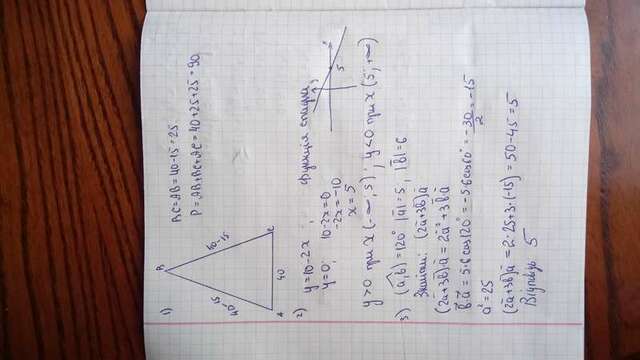 1)
B
40-15
40-15
A
40
C
BC=AB=40-15=25
P=AB+BC+AC=40+25+25=90
2) y=10-2x ; функція спадна
y=0; 10-2x=0
-2x=-10
x=5
y
5
y>0 при x (-∞; 5) ; y<0 при x (5; +∞)
3) (a,b)=120° |a|=5, |b|=6
Знайти: (2a+3b)a
(2a+3b)a=2a²+3ba
b·a=5·6cos120°=-5·6cos60°=-30/2=-15
a²=25
(2a+3b)a=2·25+3·(-15)=50-45=5
Відповідь 5